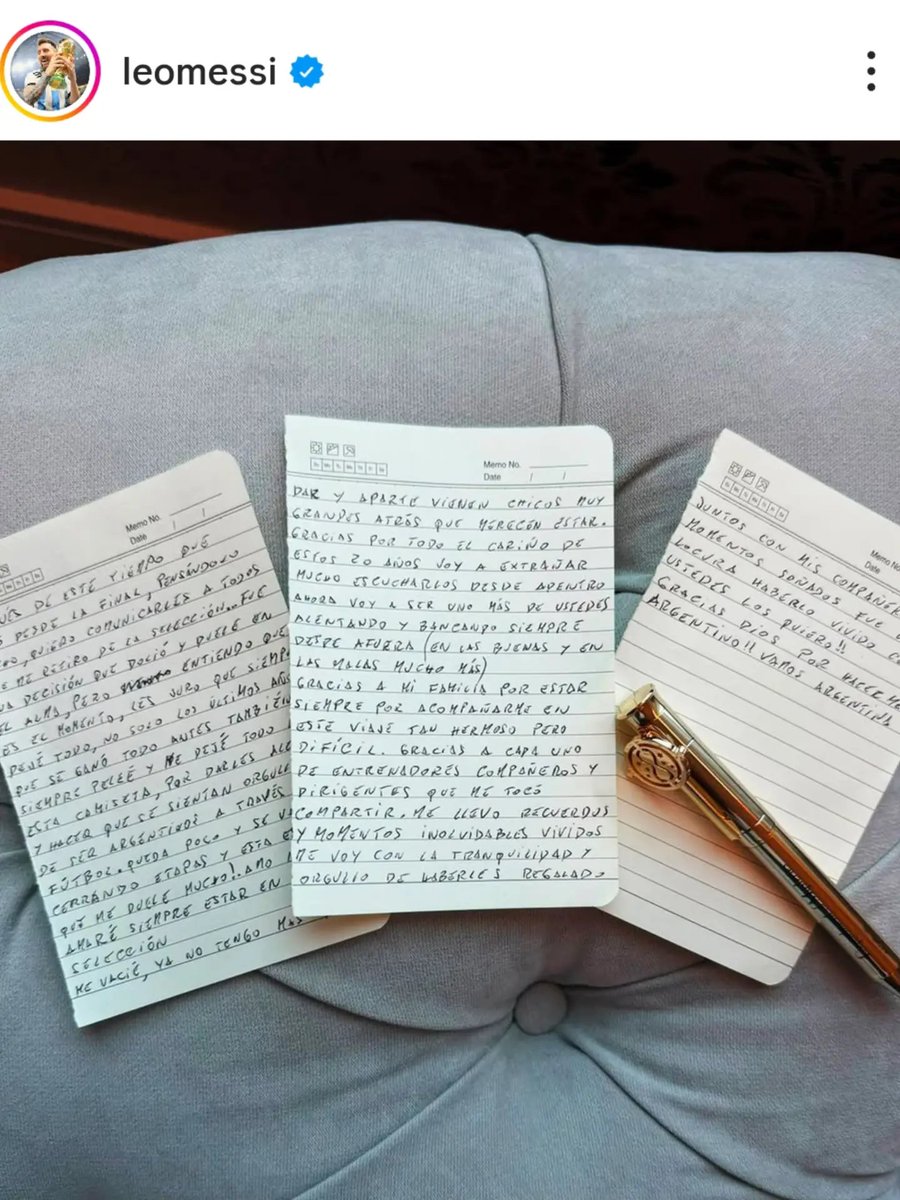 leomessi
Memo No.
Date / /
UÉS DE ESTE TIEMPO QUE
S DESDE LA FINAL, PENSÁNDOLO
QUIERO COMUNICARLES A TODOS
E ME RETIRO DE LA SELECCIÓN. FUE
NA DECISIÓN QUE DOLIÓ Y DUELE EN
EL ALMA, PERO ENTIENDO QUE
ES EL MOMENTO, LES JURO QUE SIEMP
DEJÉ TODO, NO SOLO LOS ÚLTIMOS AÑOS
QUE SE GANÓ TODO ANTES TAMBIÉN
SIEMPRE PELEÉ Y ME DEJÉ TODO
ESTA CAMISETA, POR DARLES ALE
Y HACER QUE SE SIENTAN ORGULL
DE SER ARGENTINOS A TRAVÉS
FÚTBOL. QUEDA POCO Y SE VA
CERRANDO ETAPAS Y ESTA E
QUE ME DUELE MUCHO! AMO
AMARÉ SIEMPRE ESTAR EN
SELECCIÓN
ME VACIÉ, YA NO TENGO MAS
Su Mo Tu We Th Fr Sa
Memo No.
Date / /
DAR Y APARTE VIENEN CHICOS MUY
GRANDES ATRÁS QUE MERECEN ESTAR.
GRACIAS POR TODO EL CARIÑO DE
ESTOS 20 AÑOS VOY A EXTRAÑAR
MUCHO ESCUCHARLOS DESDE ADENTRO
AHORA VOY A SER UNO MÁS DE USTEDES
ALENTANDO Y BANCANDO SIEMPRE
DESDE AFUERA (EN LAS BUENAS Y EN
LAS MALAS MUCHO MÁS)
GRACIAS A MI FAMILIA POR ESTAR
SIEMPRE POR ACOMPAÑARME EN
ESTE VIAJE TAN HERMOSO PERO
DIFÍCIL. GRACIAS A CADA UNO
DE ENTRENADORES COMPAÑEROS Y
DIRIGENTES QUE ME TOCÓ
COMPARTIR. ME LLEVO RECUERDOS
Y MOMENTOS INOLVIDABLES VIVIDOS
ME VOY CON LA TRANQUILIDAD Y
ORGULLO DE HABERLES REGALADO
Memo No.
Date
JUNTOS CON MIS COMPAÑER
MOMENTOS SOÑADOS FUE U
LOCURA HABERLO VIVIDO C
USTEDES LOS QUIERO!!
GRACIAS DIOS POR HACERME
ARGENTINO!! VAMOS ARGENTINA